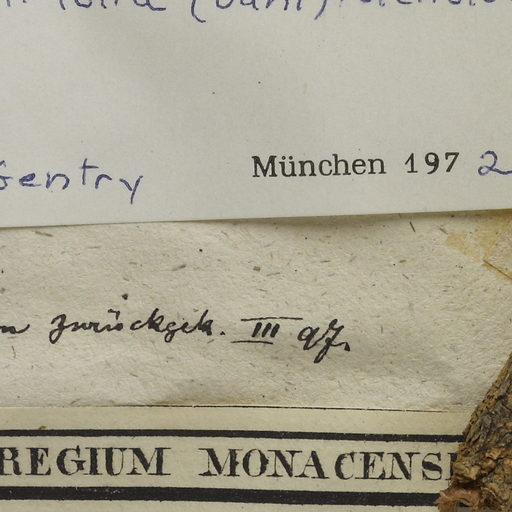 Gentry
München 197 2
zurückgek. III 97.
REGIUM MONACENS